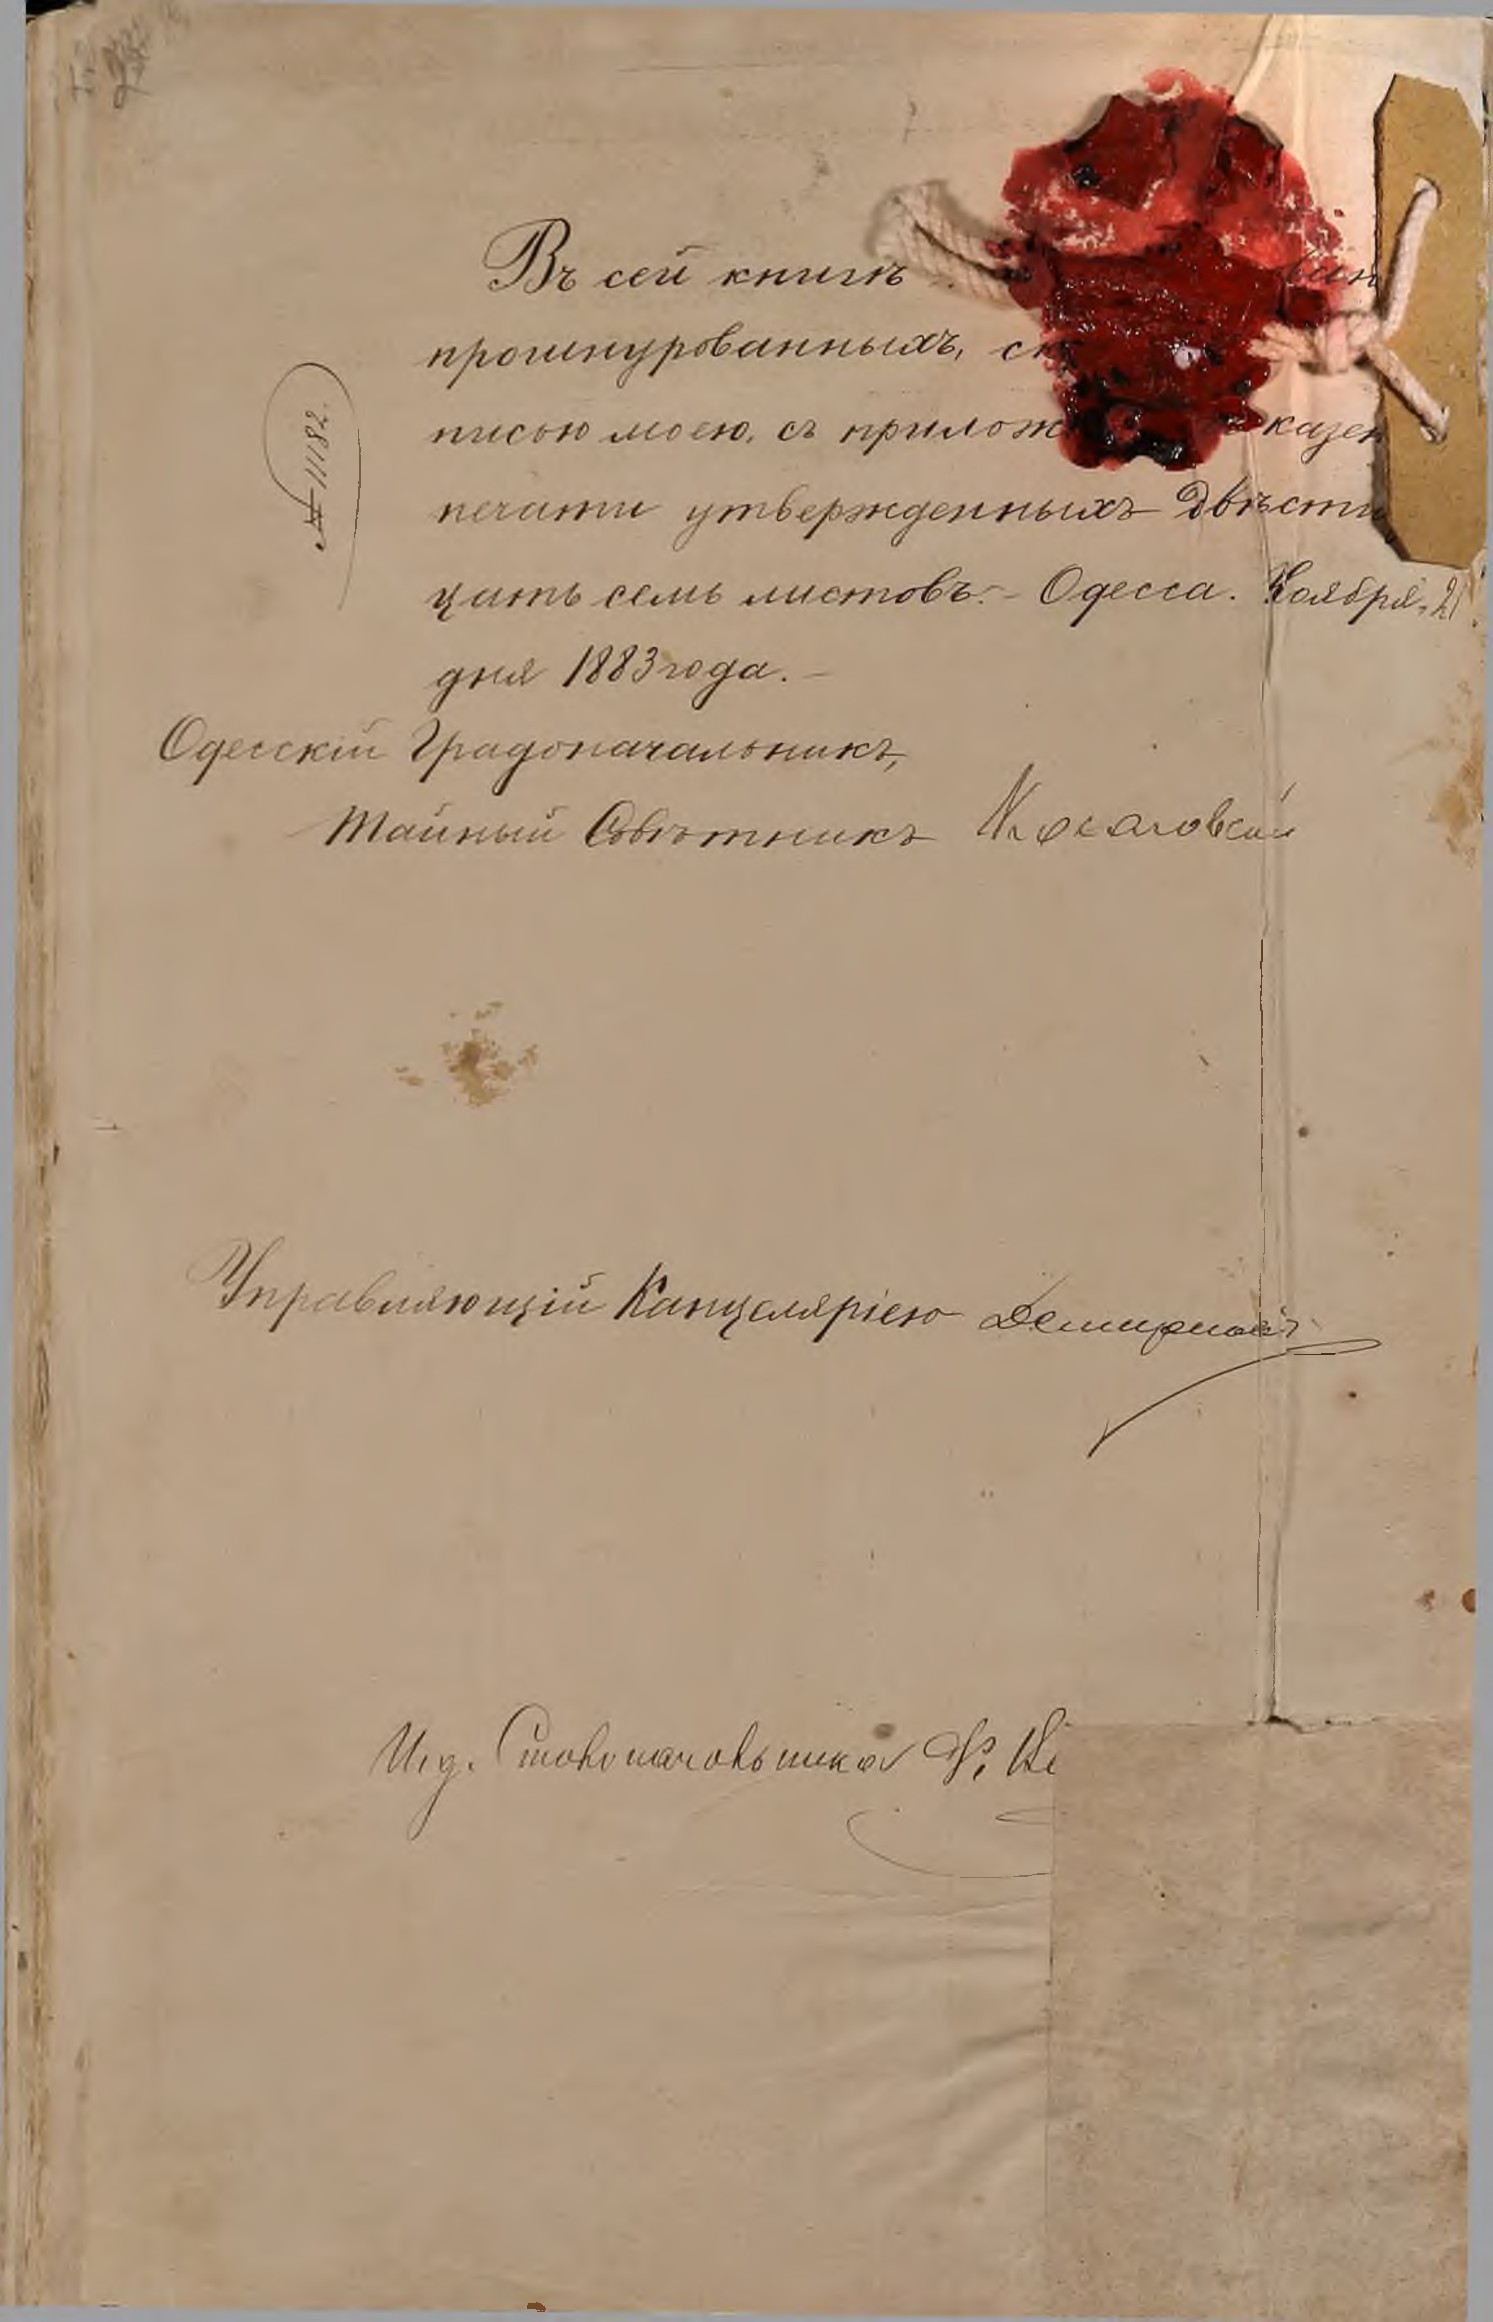 Въ сей книгѣ
прошнурованныхъ,
писью моею, съ прилож казен
печати утвержденныхъ Двѣсти
цать семь листовъ. – Одесса. Ноября, 21
дня 1883 года. –
№ 11182.
Одесскій Градоначальникъ,
Тайный Совѣтникъ Косаговскій
Управляющій Канцеляріею
И.д. Столоначальника